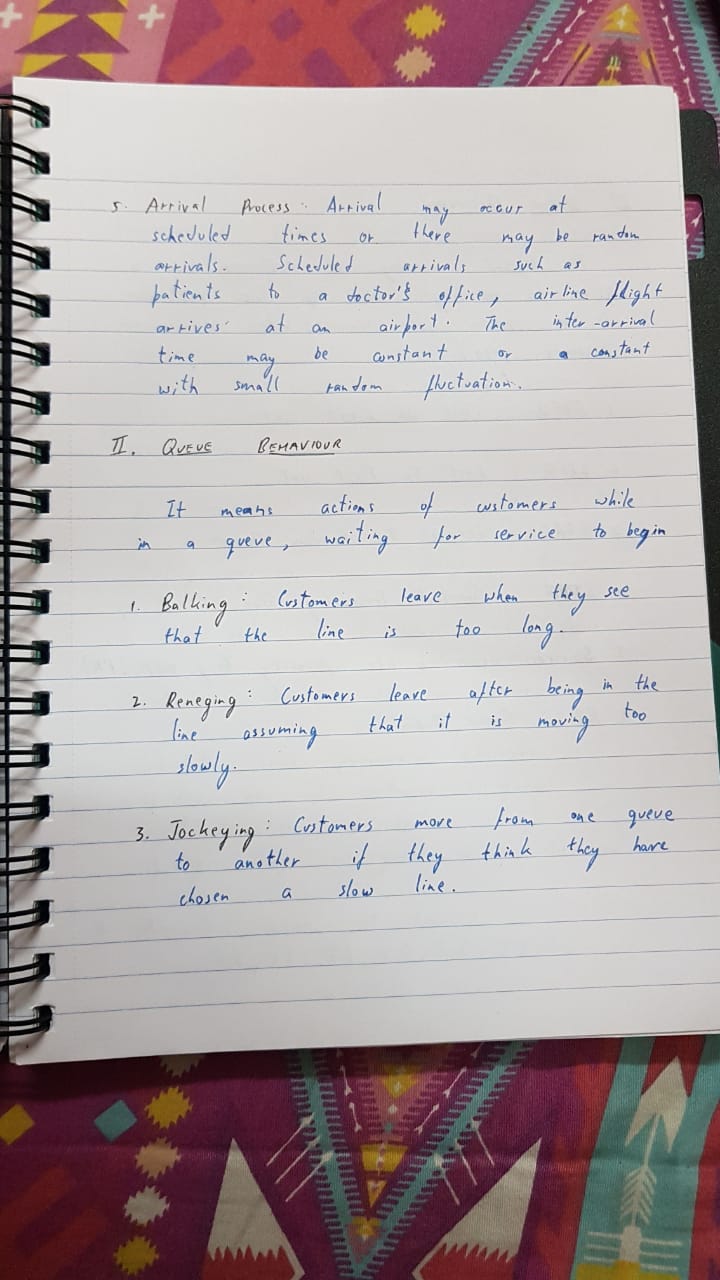 5. Arrival Process : Arrival may occur at
scheduled times or there may be random
arrivals. Scheduled arrivals such as
patients to a doctor's office, airline flight
arrives at an airport. The inter-arrival
time may be constant or a constant
with small random fluctuation.
II. QUEUE BEHAVIOUR
It means actions of customers while
in a queue, waiting for service to begin
1. Balking : Customers leave when they see
that the line is too long.
2. Reneging : Customers leave after being in the
line assuming that it is moving too
slowly.
3. Jockeying : Customers move from one queue
to another if they think they have
chosen a slow line.